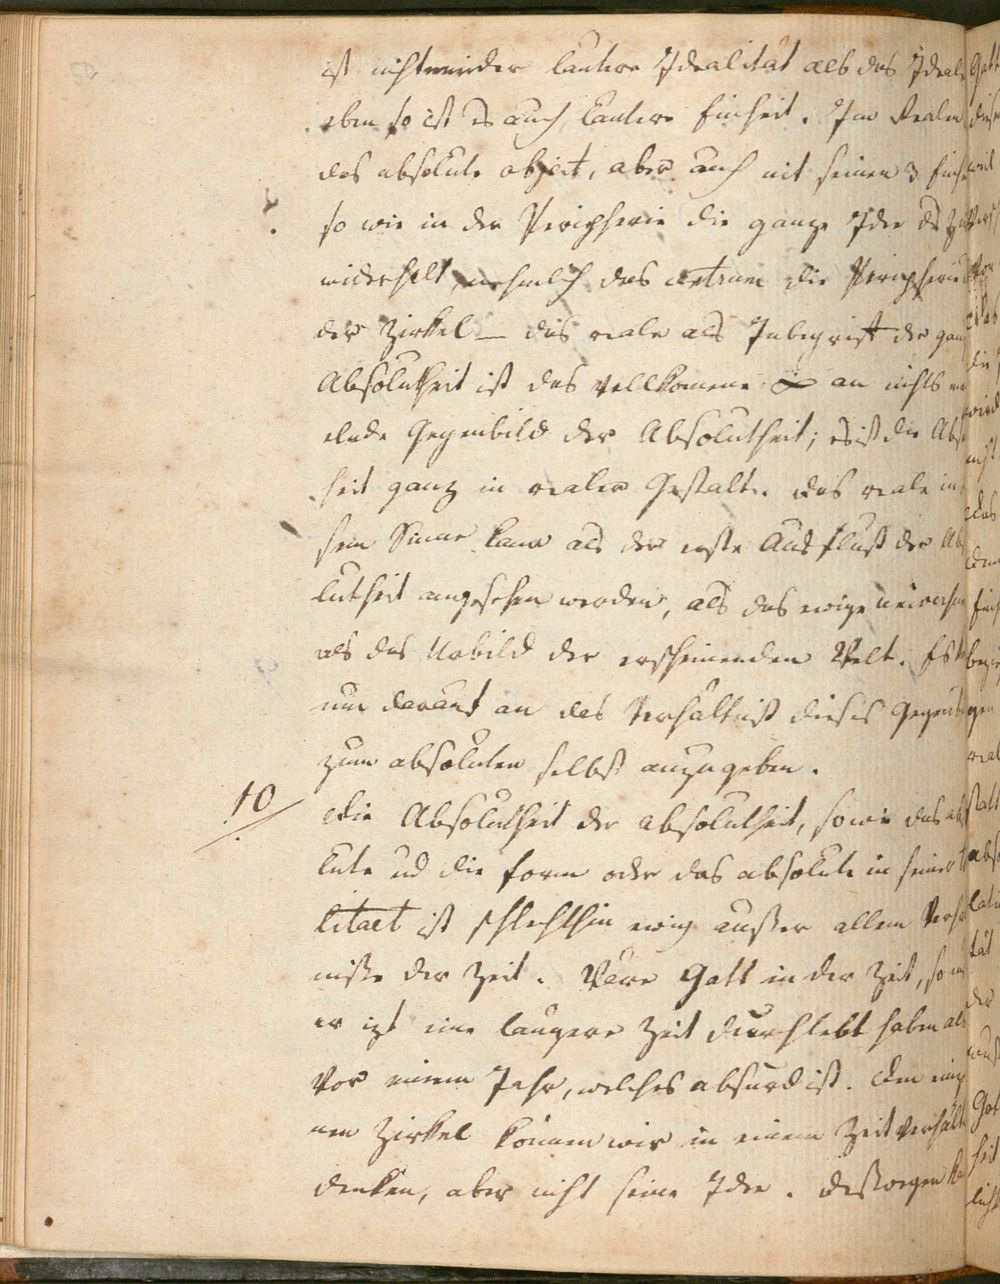 ist nicht minder lautere Idealität als das Ideale
eben so ist es auch lautere Einheit. Im Realen
das absolute object, aber auch mit seinen 3 Einh
so wie in der Peripherie die ganze Idee des
widerhalt, nehmlich das centrum die Peripherie
der Zirkel – das reale als Inbegriff der ganz
Absolutheit ist das vollkomene an nichts
elnde Gegenbild der Absolutheit; es ist die Abs
heit ganz in realer Gestalt. das reale in
sem Sinne kann als der erste Ausfluß der Ab
lutheit angesehen werden, als das ewige universum
als das Urbild der erscheinenden Welt. Es
nur darauf an das Verhältniß dieses Gegenb
zum absoluten selbst anzugeben.
10
Die Absolutheit der absolutheit, sowie das abs
lute ud die form oder das absolute in seiner
litaet ist schlechthin ewig außer allem Verhä
niße der Zeit. Wäre Gott in der Zeit, so
er izt eine längere Zeit durchlebt haben als
vor einem Jahr, welches absurd ist. Den einz
nen Zirkel können wir in einem Zeitverhält
denken, aber nicht seine Idee. Deßwegen